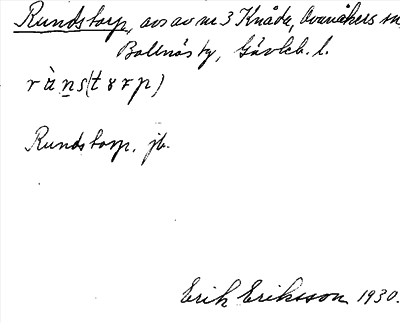 Rundstorp, avs av nr 3 Knåda, Ovanåkers sn,
Bollnäs ty, Gävleb. l.
ràns(tɤrp)
Rundstorp. jb.
Erik Eriksson 1930.